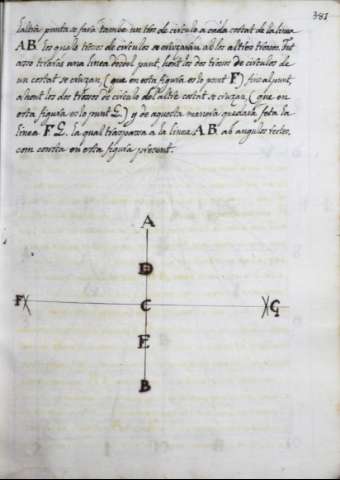 381
laltra punta se fara tambe un tros de circulo a cada costat de la linea
A B los quals trosos de circulos se cruzaran ab los altres trosos,
una linea del punt, hont los dos trosos de circulos de
un costat se cruzan, (que en esta figura es lo punt F) fins al punt,
ahont los dos trosos de circulo del altre costat se cruzan, (que en
esta figura es lo punt G) y de aquesta manera quedará feta la
linea F G. la qual traspassa a la linea A B ab angulos rectos,
com consta en esta figura present.
A
D
F C G
E
B